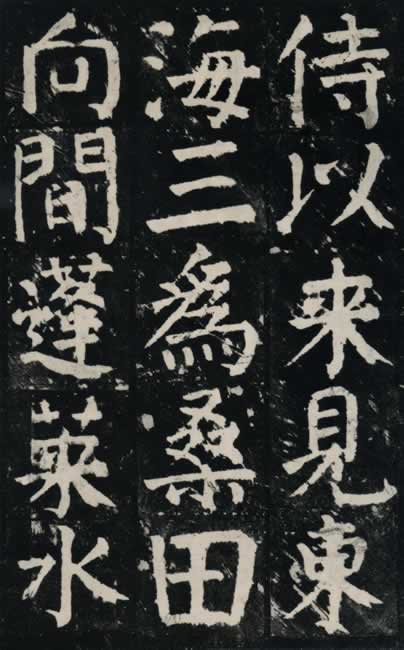 侍以来見東
海三為桑田
向間蓬莱水